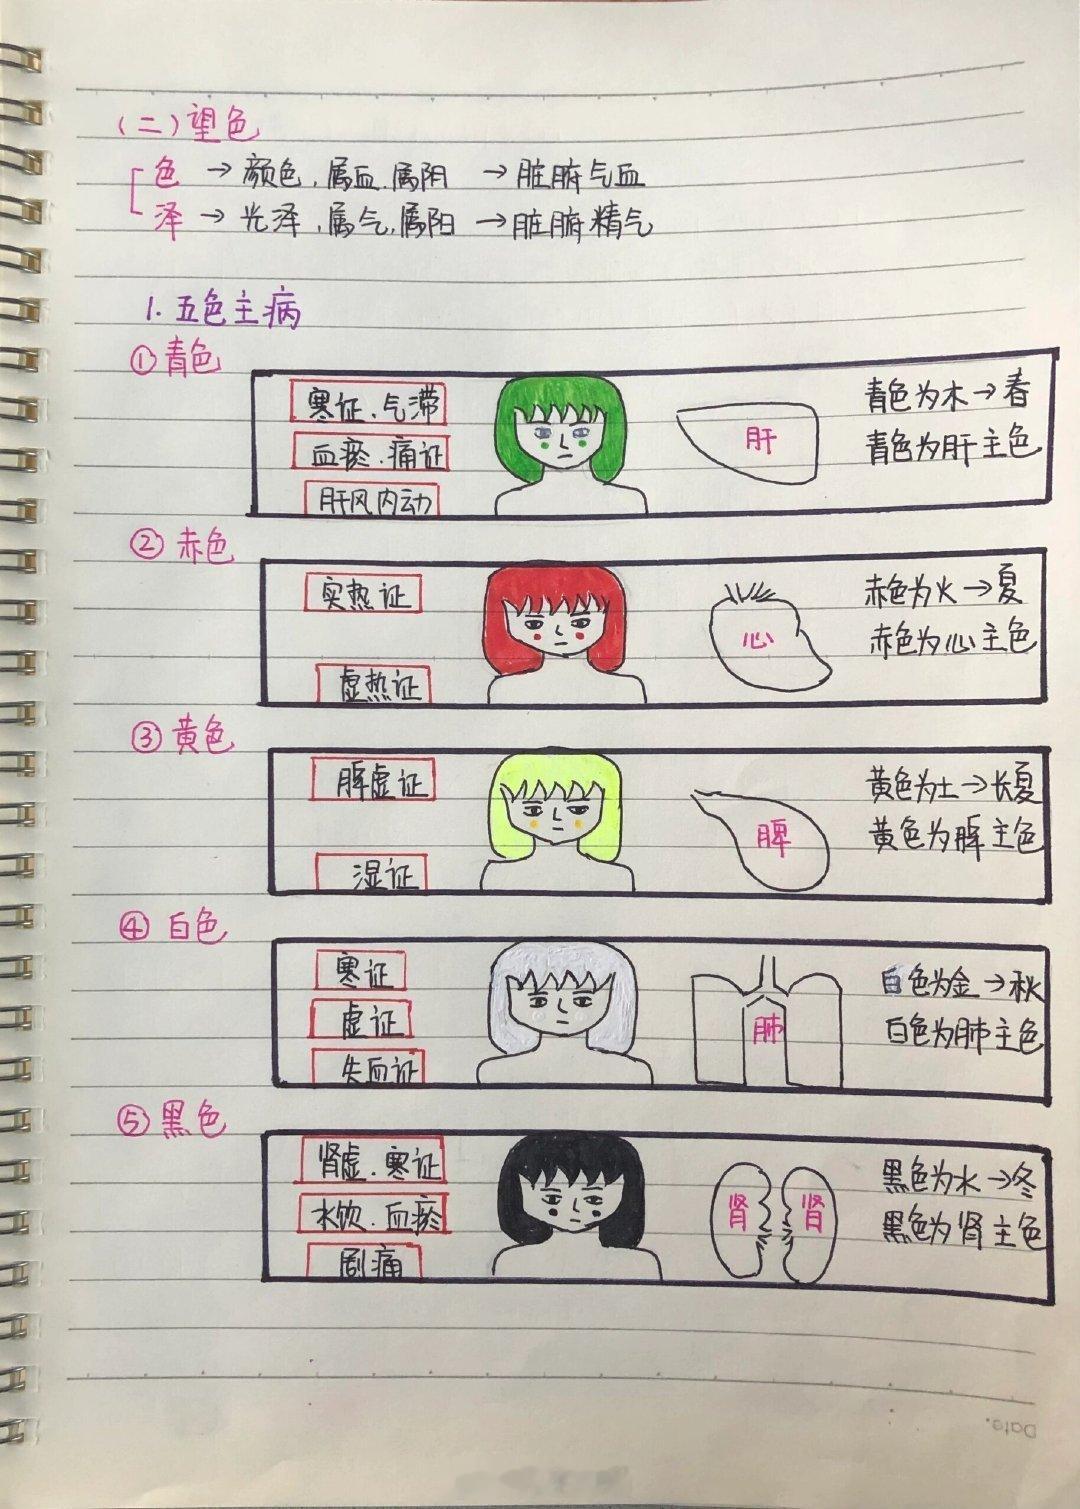 (二)望色
色 → 颜色、属血、属阴 → 脏腑气血
泽 → 光泽、属气、属阳 → 脏腑精气
1. 五色主病
①青色
寒证、气滞
血瘀、痛证
肝风内动
肝
青色为木→春
青色为肝主色
②赤色
实热证
虚热证
心
赤色为火→夏
赤色为心主色
③黄色
脾虚证
湿证
脾
黄色为土→长夏
黄色为脾主色
④白色
寒证
虚证
失血证
肺
白色为金→秋
白色为肺主色
⑤黑色
肾虚、寒证
水饮、血瘀
剧痛
肾 肾
黑色为水→冬
黑色为肾主色
Date.